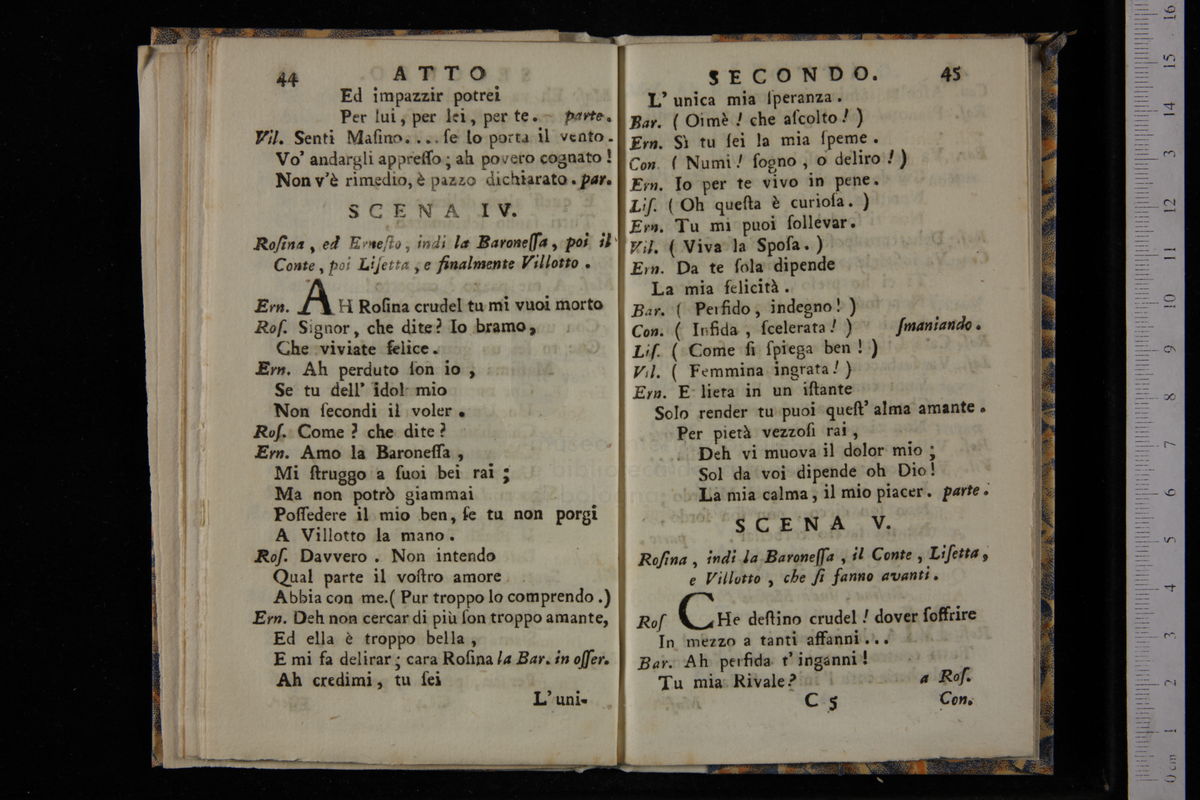 44 ATTO
Ed impazzir potrei
Per lui, per lei, per te. parte.
Vil. Senti Maſino.... ſe lo porta il vento.
Vo' andargli appreſſo; ah povero cognato!
Non v'è rimedio, è pazzo dichiarato. par.
SCENA IV.
Roſina, ed Erneſto, indi la Baroneſſa, poi il
Conte, poi Liſetta, e finalmente Villotto.
Ern. AH Roſina crudel tu mi vuoi morto
Roſ. Signor, che dite? Io bramo,
Che viviate felice.
Ern. Ah perduto ſon io,
Se tu dell' idol mio
Non ſecondi il voler.
Roſ. Come? che dite?
Ern. Amo la Baroneſſa,
Mi ſtruggo a ſuoi bei rai;
Ma non potrò giammai
Poſſedere il mio ben, ſe tu non porgi
A Villotto la mano.
Roſ. Davvero. Non intendo
Qual parte il voſtro amore
Abbia con me. (Pur troppo lo comprendo.)
Ern. Deh non cercar di più ſon troppo amante,
Ed ella è troppo bella,
E mi fa delirar; cara Roſina la Bar. in oſſer.
Ah credimi, tu ſei
L'uni-
SECONDO. 45
L'unica mia ſperanza.
Bar. (Oimè! che aſcolto!)
Ern. Sì tu ſei la mia ſpeme.
Con. (Numi! ſogno, o deliro!)
Ern. Io per te vivo in pene.
Liſ. (Oh queſta è curioſa.)
Ern. Tu mi puoi ſollevar.
Vil. (Viva la Spoſa.)
Ern. Da te ſola dipende
La mia felicità.
Bar. (Perfido, indegno!)
Con. (Infida, ſcelerata!) ſmaniando.
Liſ. (Come ſi ſpiega ben!)
Vil. (Femmina ingrata!)
Ern. E lieta in un iſtante
Solo render tu puoi queſt' alma amante.
Per pietà vezzoſi rai,
Deh vi muova il dolor mio;
Sol da voi dipende oh Dio!
La mia calma, il mio piacer. parte.
SCENA V.
Roſina, indi la Baroneſſa, il Conte, Liſetta,
e Villotto, che ſi fanno avanti.
Roſ CHe deſtino crudel! dover ſoffrire
In mezzo a tanti affanni...
Bar. Ah perfida t'inganni!
Tu mia Rivale? a Roſ.
C 5 Con.